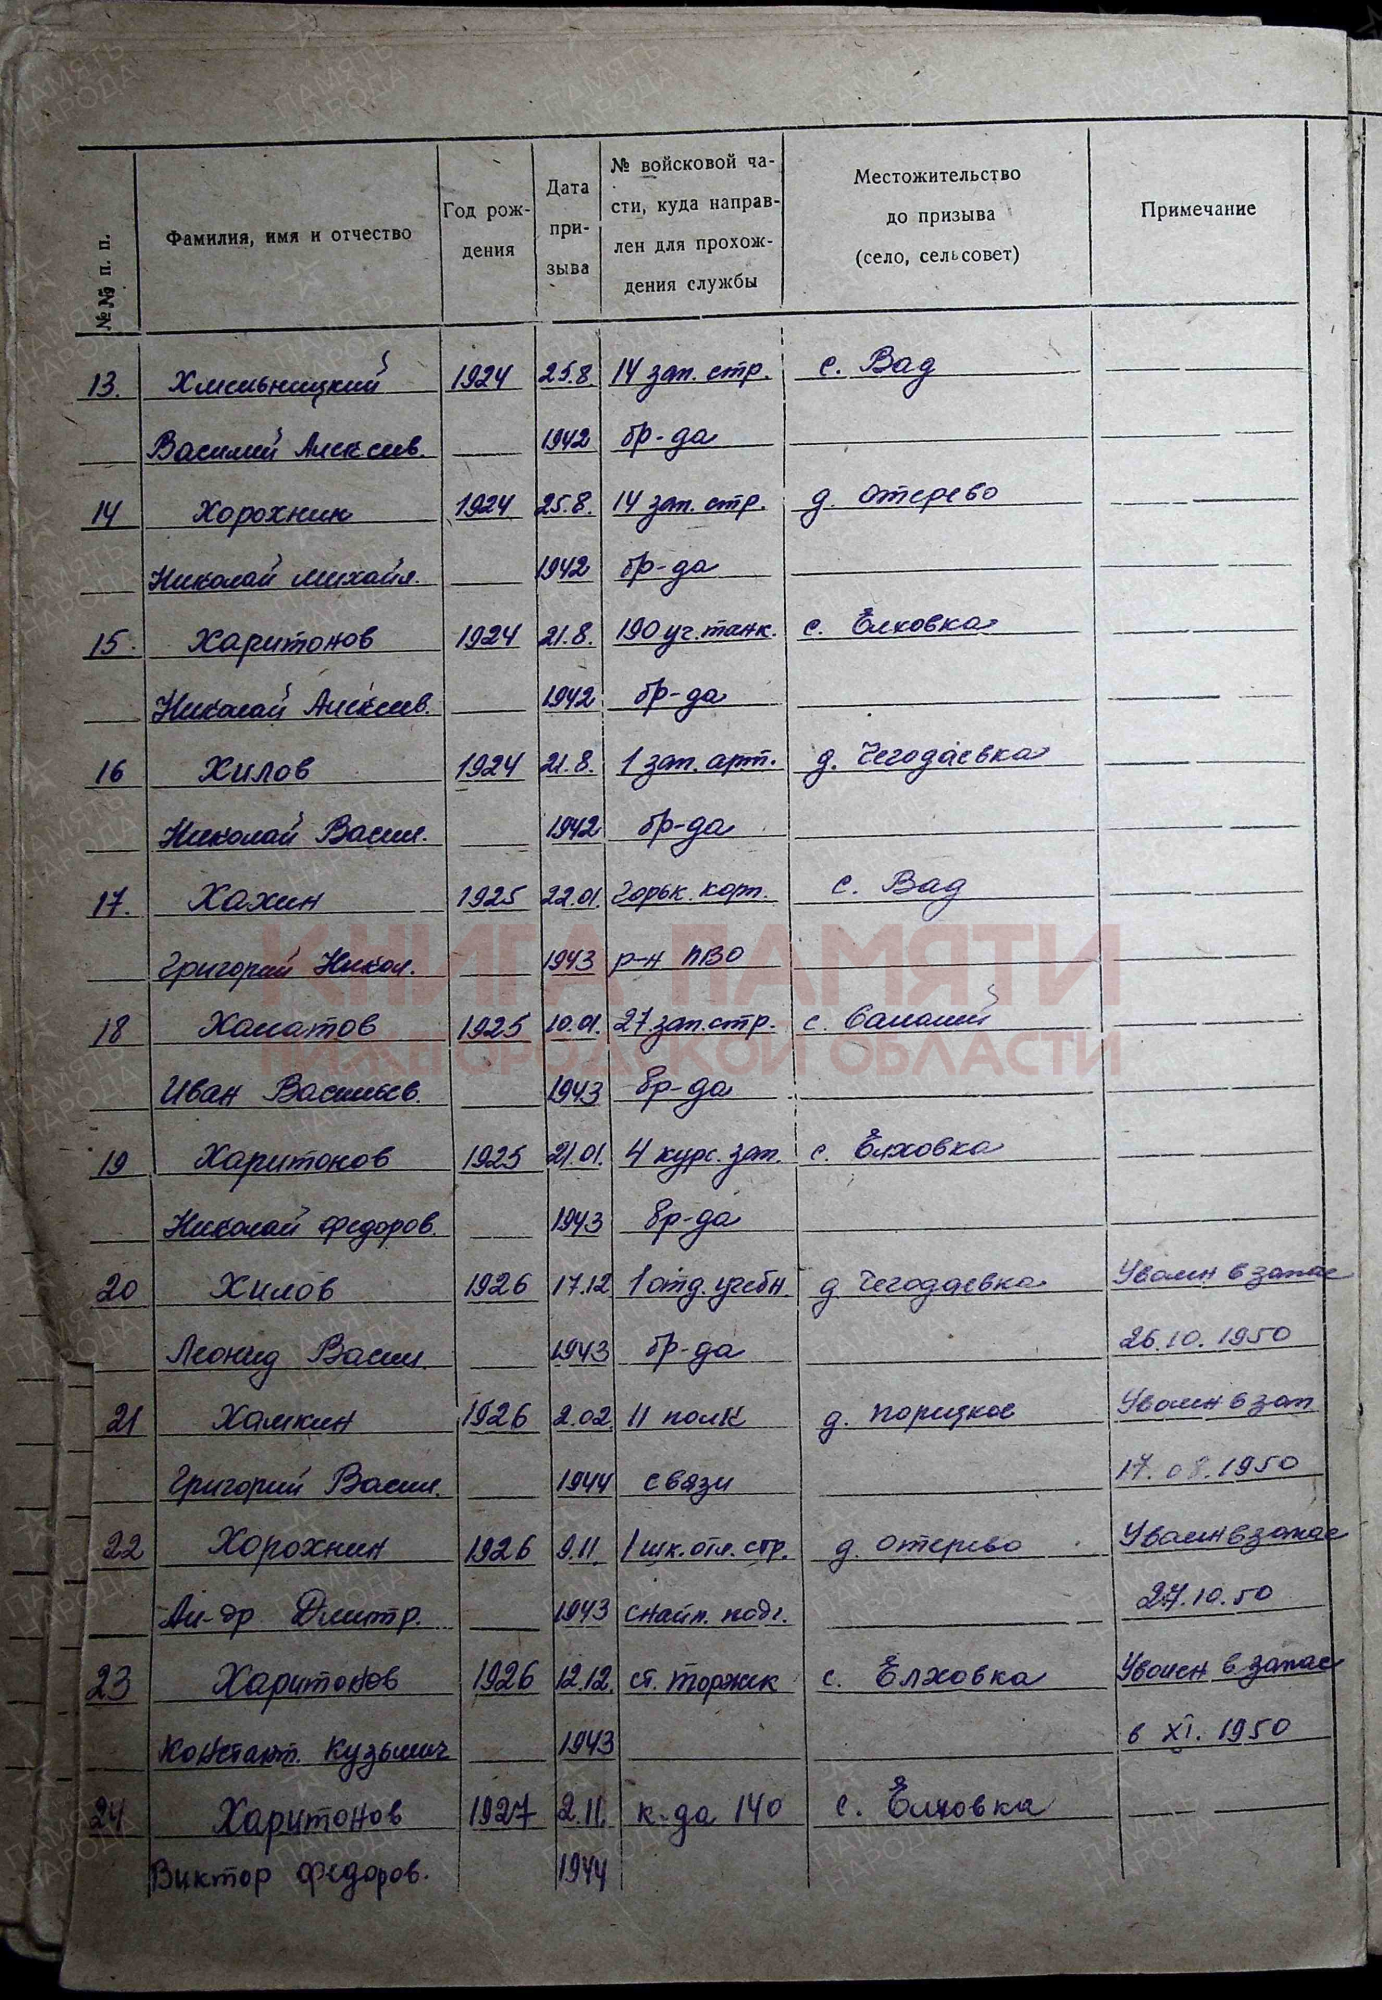 №№ п. п.
Фамилия, имя и отчество
Год рож-
дения
Дата
при-
зыва
№ войсковой ча-
сти, куда направ-
лен для прохож-
дения службы
Местожительство
до призыва
(село, сельсовет)
Примечание
13. Хмельницкий 1924 25.8 14 зап. стр. с. Вад
Василий Алексеев. 1942 бр-да
14 Хорохнин 1924 25.8. 14 зап. стр. д. Отерево
Николай Михайл. 1942 бр-да
15. Харитонов 1924 21.8. 190 уч. танк. с. Ёлховка
Николай Алексеев. 1942 бр-да
16 Хилов 1924 21.8. 1 зап. арт. д. Чегодаевка
Николай Васил. 1942 бр-да
17. Хахин 1925 22.01. Горьк. корп. с. Вад
Григорий Никол. 1943 р-н ПВО
18 Халатов 1925 10.01. 27 зап. стр. с.
Иван Васильев. 1943 бр-да
19 Харитонов 1925 21.01. 4 курс. зап. с. Ёлховка
Николай Федоров. 1943 бр-да
20 Хилов 1926 17.12 1 отд. учебн. д. Чегодаевка Уволен в запас
Леонид Васил. 1943 бр-да 26.10.1950
21 Хамкин 1926 2.02 11 полк д. Порецкое Уволен в зап
Григорий Васил. 1944 связи 17.08.1950
22 Хорохнин 1926 9.11. 1 шк. отл. стр. д. Отерево Уволен в запас
Ал-др Дмитр. 1943 снайп. подг. 27.10.50
23 Харитонов 1926 12.12. ст. Торжек с. Ёлховка Уволен в запас
Констант. Кузьмич 1943 в XI. 1950
24 Харитонов 1927 2.11. к-да 140 с. Ёлховка
Виктор Федоров. 1944
КНИГА ПАМЯТИ
НИЖЕГОРОДСКОЙ ОБЛАСТИ
ПАМЯТЬ
НАРОДА